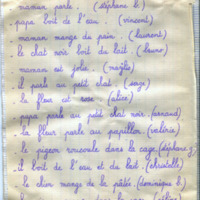 maman parle. (stéphane b.)
papa boit de l'eau. (vincent)
maman mange du pain. (laurent)
le chat noir boit du lait. (bruno)
maman est jolie. (magalie)
il parle au petit chat. (serge)
la fleur est rose. (alice)
papa parle au petit chat noir. (arnaud)
la fleur parle au papillon. (valérie)
le pigeon roucoule dans la cage. (stéphane g.
il boit de l'eau et du lait. (christelle)
le chien mange de la pâtée. (dominique b.)
dans la